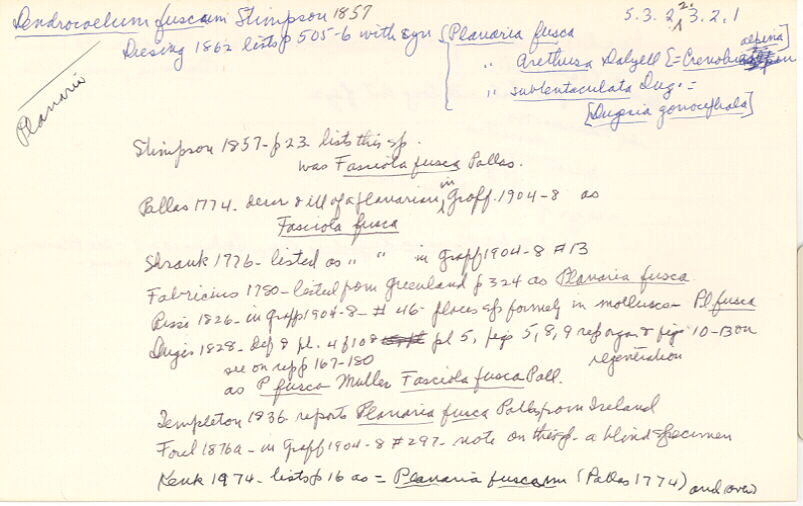 Dendrocoelum fuscum Stimpson 1857
5.3.2.2.3.2.1
Diesing 1862 lists p 505-6 with syn { Planaria fusca
" Arethusa Dalyell [= Crenobia alpina]
" subtentaculata Dug. =
[Dugesia gonocephala]
Planaria
Stimpson 1857 - p 23 lists this sp.
was Fasciola fusca Pallas.
Pallas 1774 - descr & ill of a planarian, in Graff. 1904-8 as
Fasciola fusca
Shrank 1776 - listed as " " in Graff 1904-8 #13
Fabricius 1780 - listed from Greenland p 324 as Planaria fusca
Risso 1826 - in Graff 1904-8 - # 46 - places sp formely in mollusca - Pl. fusca
Dugès 1828 - pl 5, figs 5, 8, 9 rep organ & figs 10-13 on
regeneration
see on rep p 167-180
as P. fusca Muller Fasciola fusca Pall.
Templeton 1836 reports Planaria fusca Pallas from Ireland
Forel 1876a - in Graff 1904-8 #297 - note on this sp - a blind specimen
Kenk 1974 - lists p 16 as = Planaria fuscum (Pallas 1774) and over